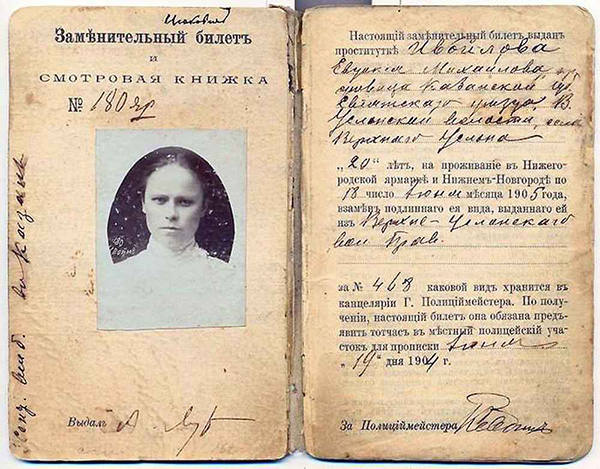 Замѣнительный билетъ
и
СМОТРОВАЯ КНИЖКА
№ 180 яр
Выдалъ
Настоящій замѣнительный билетъ выданъ
проституткѣ
Евдокія Михайлова
Казанской
уѣзда, В.
Услонской волости, села
Верхняго Услона
„20“ лѣтъ, на проживаніе въ Нижего-
родской ярмаркѣ и Нижнемъ-Новгородѣ по
18 число Іюня мѣсяца 1905 года,
взамѣнъ подлиннаго ея вида, выданнаго ей
изъ Верхне-Услонскаго
вол. Прав.
за № 468 каковой видъ хранится въ
канцеляріи Г. Полиціймейстера. По полу-
ченіи, настоящій билетъ она обязана предъ-
явить тотчасъ въ мѣстный полицейскій уча-
стокъ для прописки Іюня
„19“ дня 1904 г.
За Полиціймейстера